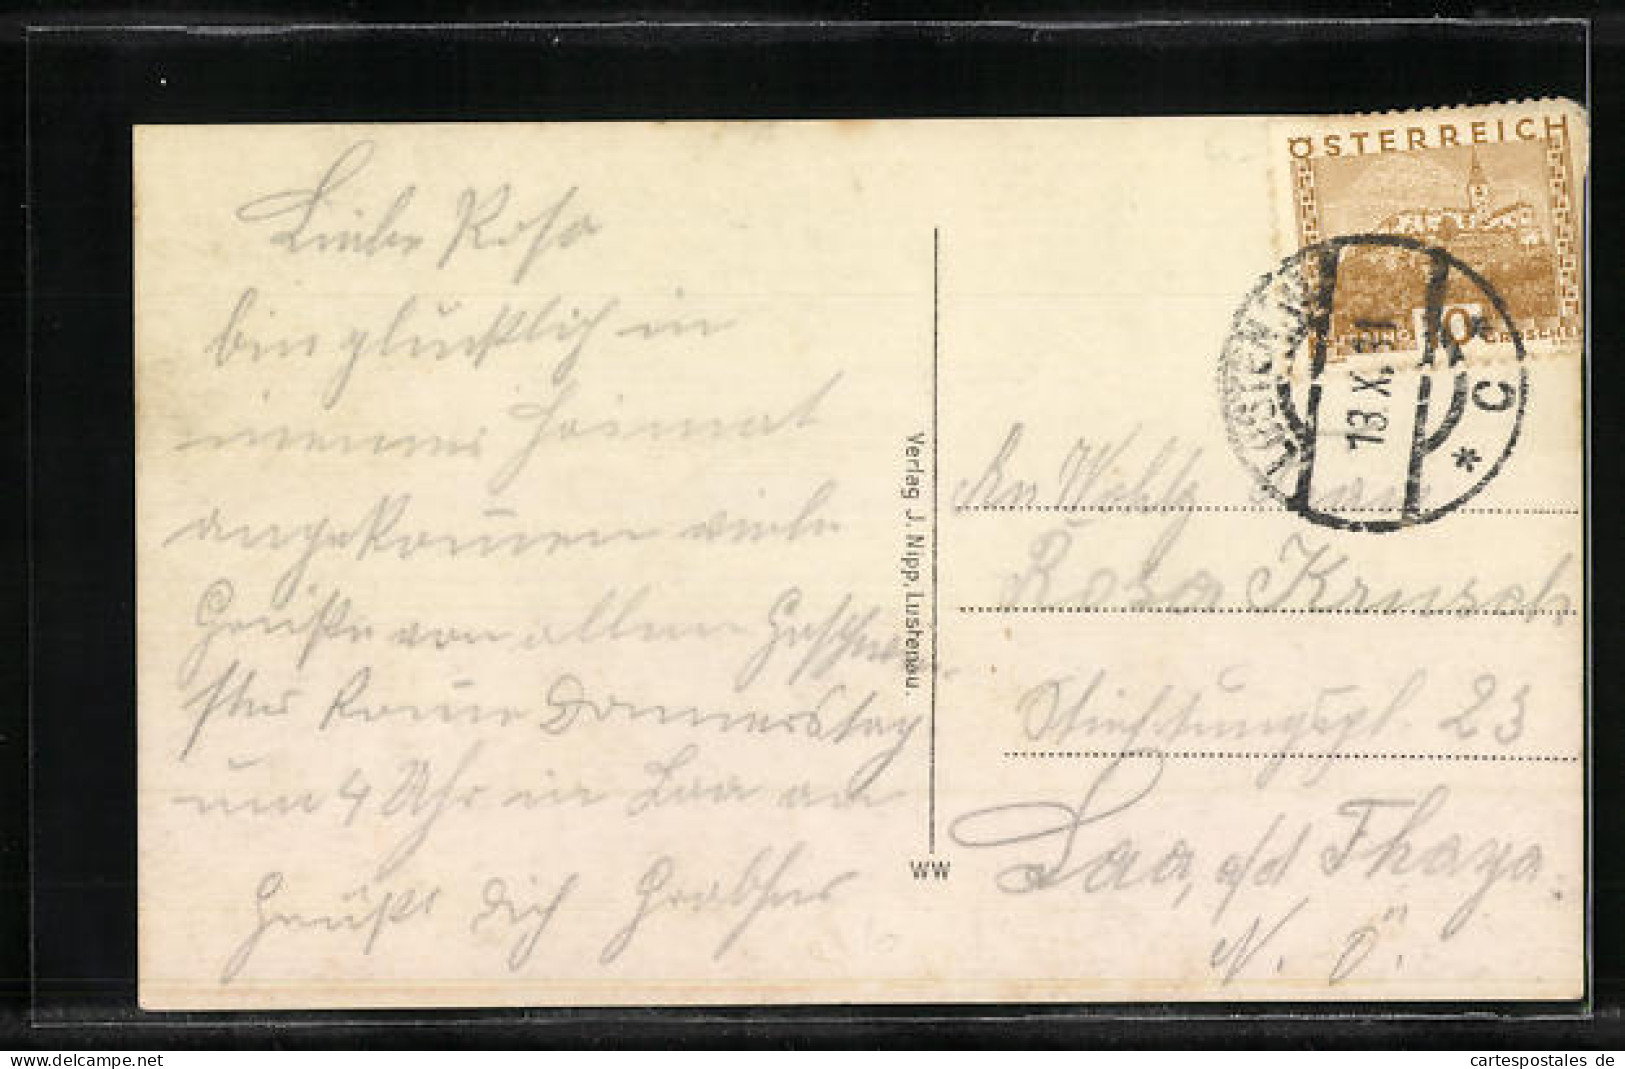 Liebe Rosa
bin glücklich in
meiner Heimat
angekom̄en viele
Grüße von allen Geschwi-
ster kom̄e Donnerstag
um 4 Uhr in Laa an
Grüßt dich
Verlag J. Nipp, Lustenau.
WW
ÖSTERREICH
10 GROSCHEN
LUSTENAU
13 X. 31
* C *
An Wohlg
Rosa Krusch
Stiftungspl. 23
Laa, a/d Thaya.
N. Ö.
cartespostales de